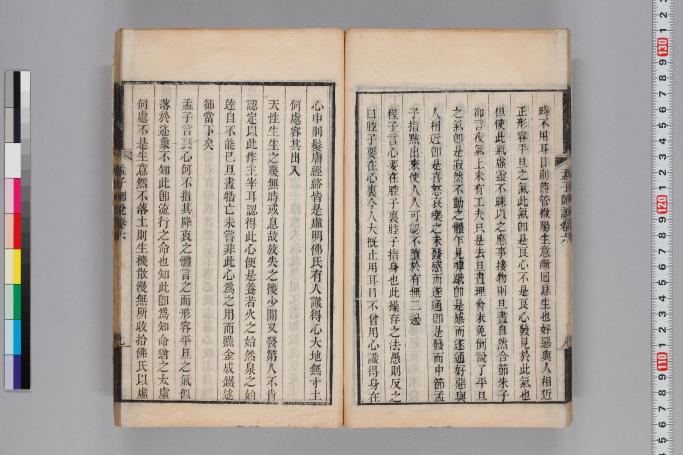 時不用耳目則葆管微陽生意漸回息生也好惡與人相近
正形容平旦之氣此氣卽是良心不是良心發見於此氣也
但使此氣虛靈不昧以之應事接物則旦晝自然合節朱子
卻言夜氣上未有工夫只是去旦晝理會未免倒說了平旦
之氣卽是寂然不動之體乍見惻隱卽是感而遂通好惡與
人相近卽是喜怒哀樂之未發感而遂通卽是發而中節孟
子指點出來使人人可認不墮於有無二邊
程子言心要在腔子裏腔子指身也此操存之法愚則反之
曰腔子要在心裏今人大槪止用耳目不曾用心識得身在
心中則髮膚經絡皆是虛明佛氏有人識得心大地無寸土
何處容其出入
天性生生之幾無時或息故放失之後少閒又發第人不肯
認定以此作主宰耳認得此心便是養若火之始然泉之始
達自不能已旦晝牿亡未嘗非此心爲之用而點金成鐵迷
卻當下矣
孟子言良心何不指其降衷之體言之而形容平旦之氣似
落於迹象不知此卽流行之命也知此卽爲知命猶之太虛
何處不是生意然不落土則生機散漫無所收拾佛氏以虛
孟子師說卷六